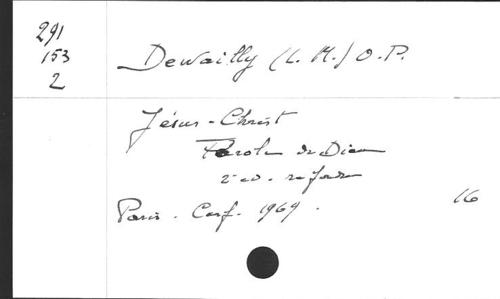 291
153
2
Dewailly (L. M.) O.P.
Jésus-Christ
Parole de Dieu
2e ed. refondue
Paris. Cerf. 1969.
16